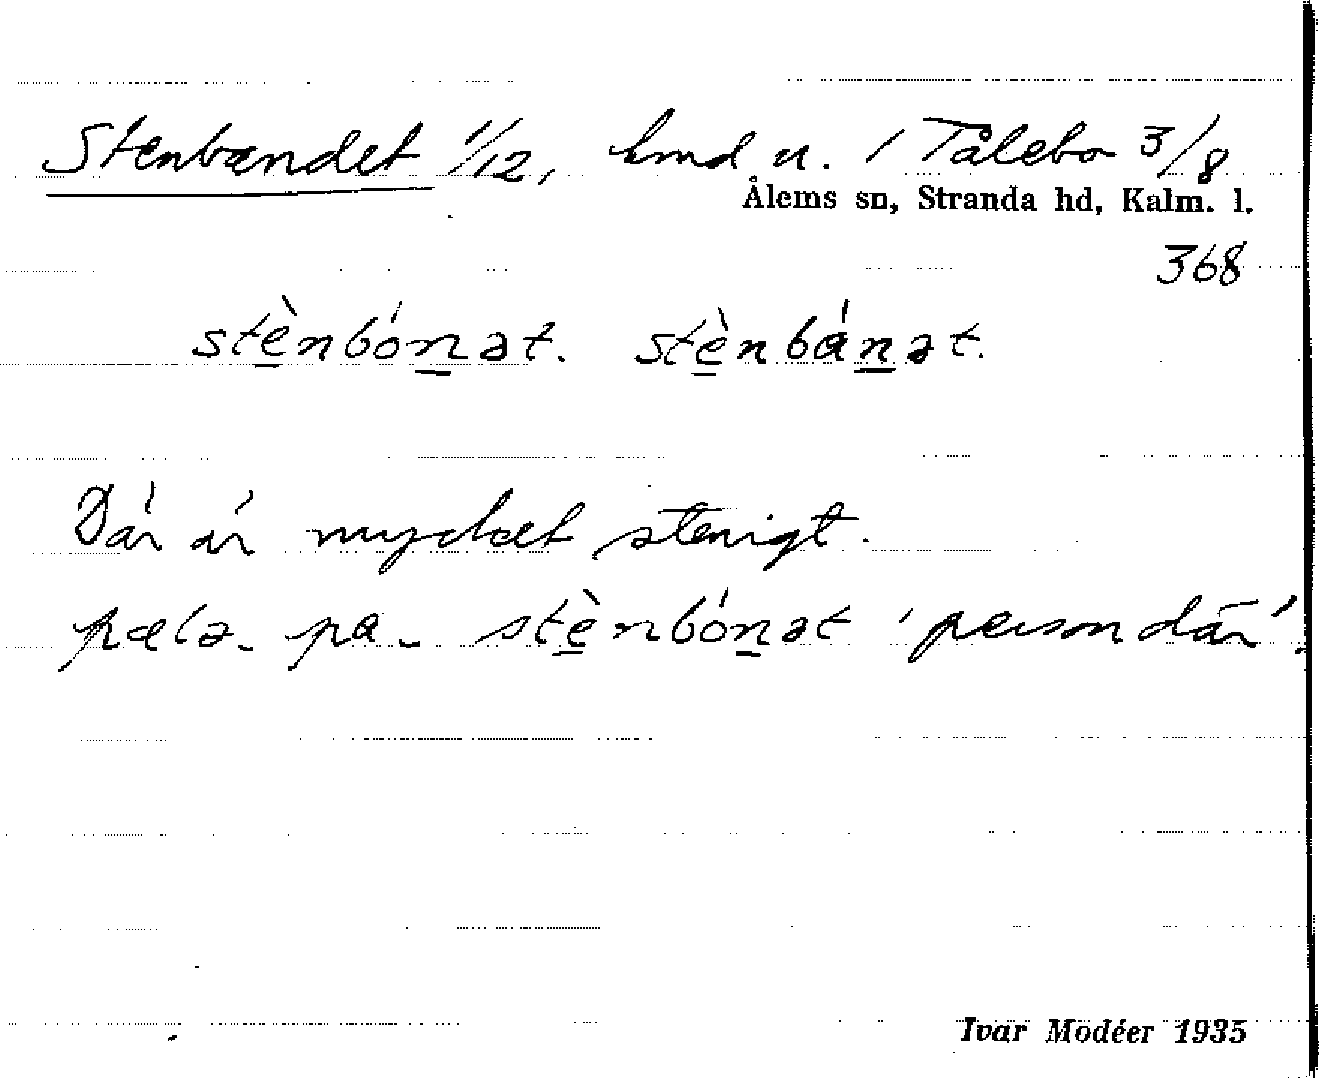 Stenbandet 1/12, hmd n. / Tålebo 3/8
Ålems sn, Stranda hd, Kalm. l.
368
stènbónət. stènbánət.
Där är mycket stenigt.
pælə- pa- stènbónət 'person där'.
Ivar Modéer 1935